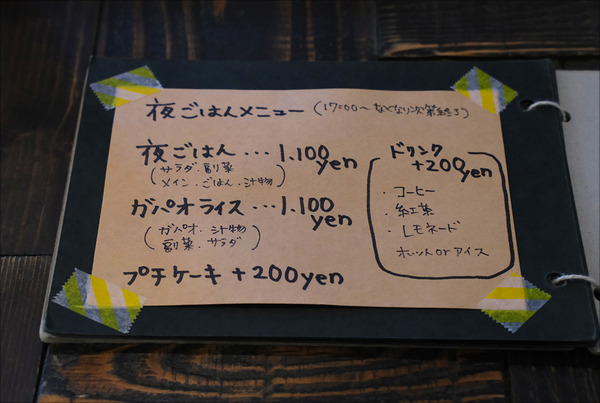 夜ごはんメニュー (17:00〜 なくなり次第終了)
夜ごはん … 1,100 yen
(サラダ・副菜
メイン・ごはん・汁物)
ガパオライス … 1,100 yen
(ガパオ・汁物
副菜・サラダ)
プチケーキ +200yen
ドリンク
+200yen
・コーヒー
・紅茶
・レモネード
ホット or アイス